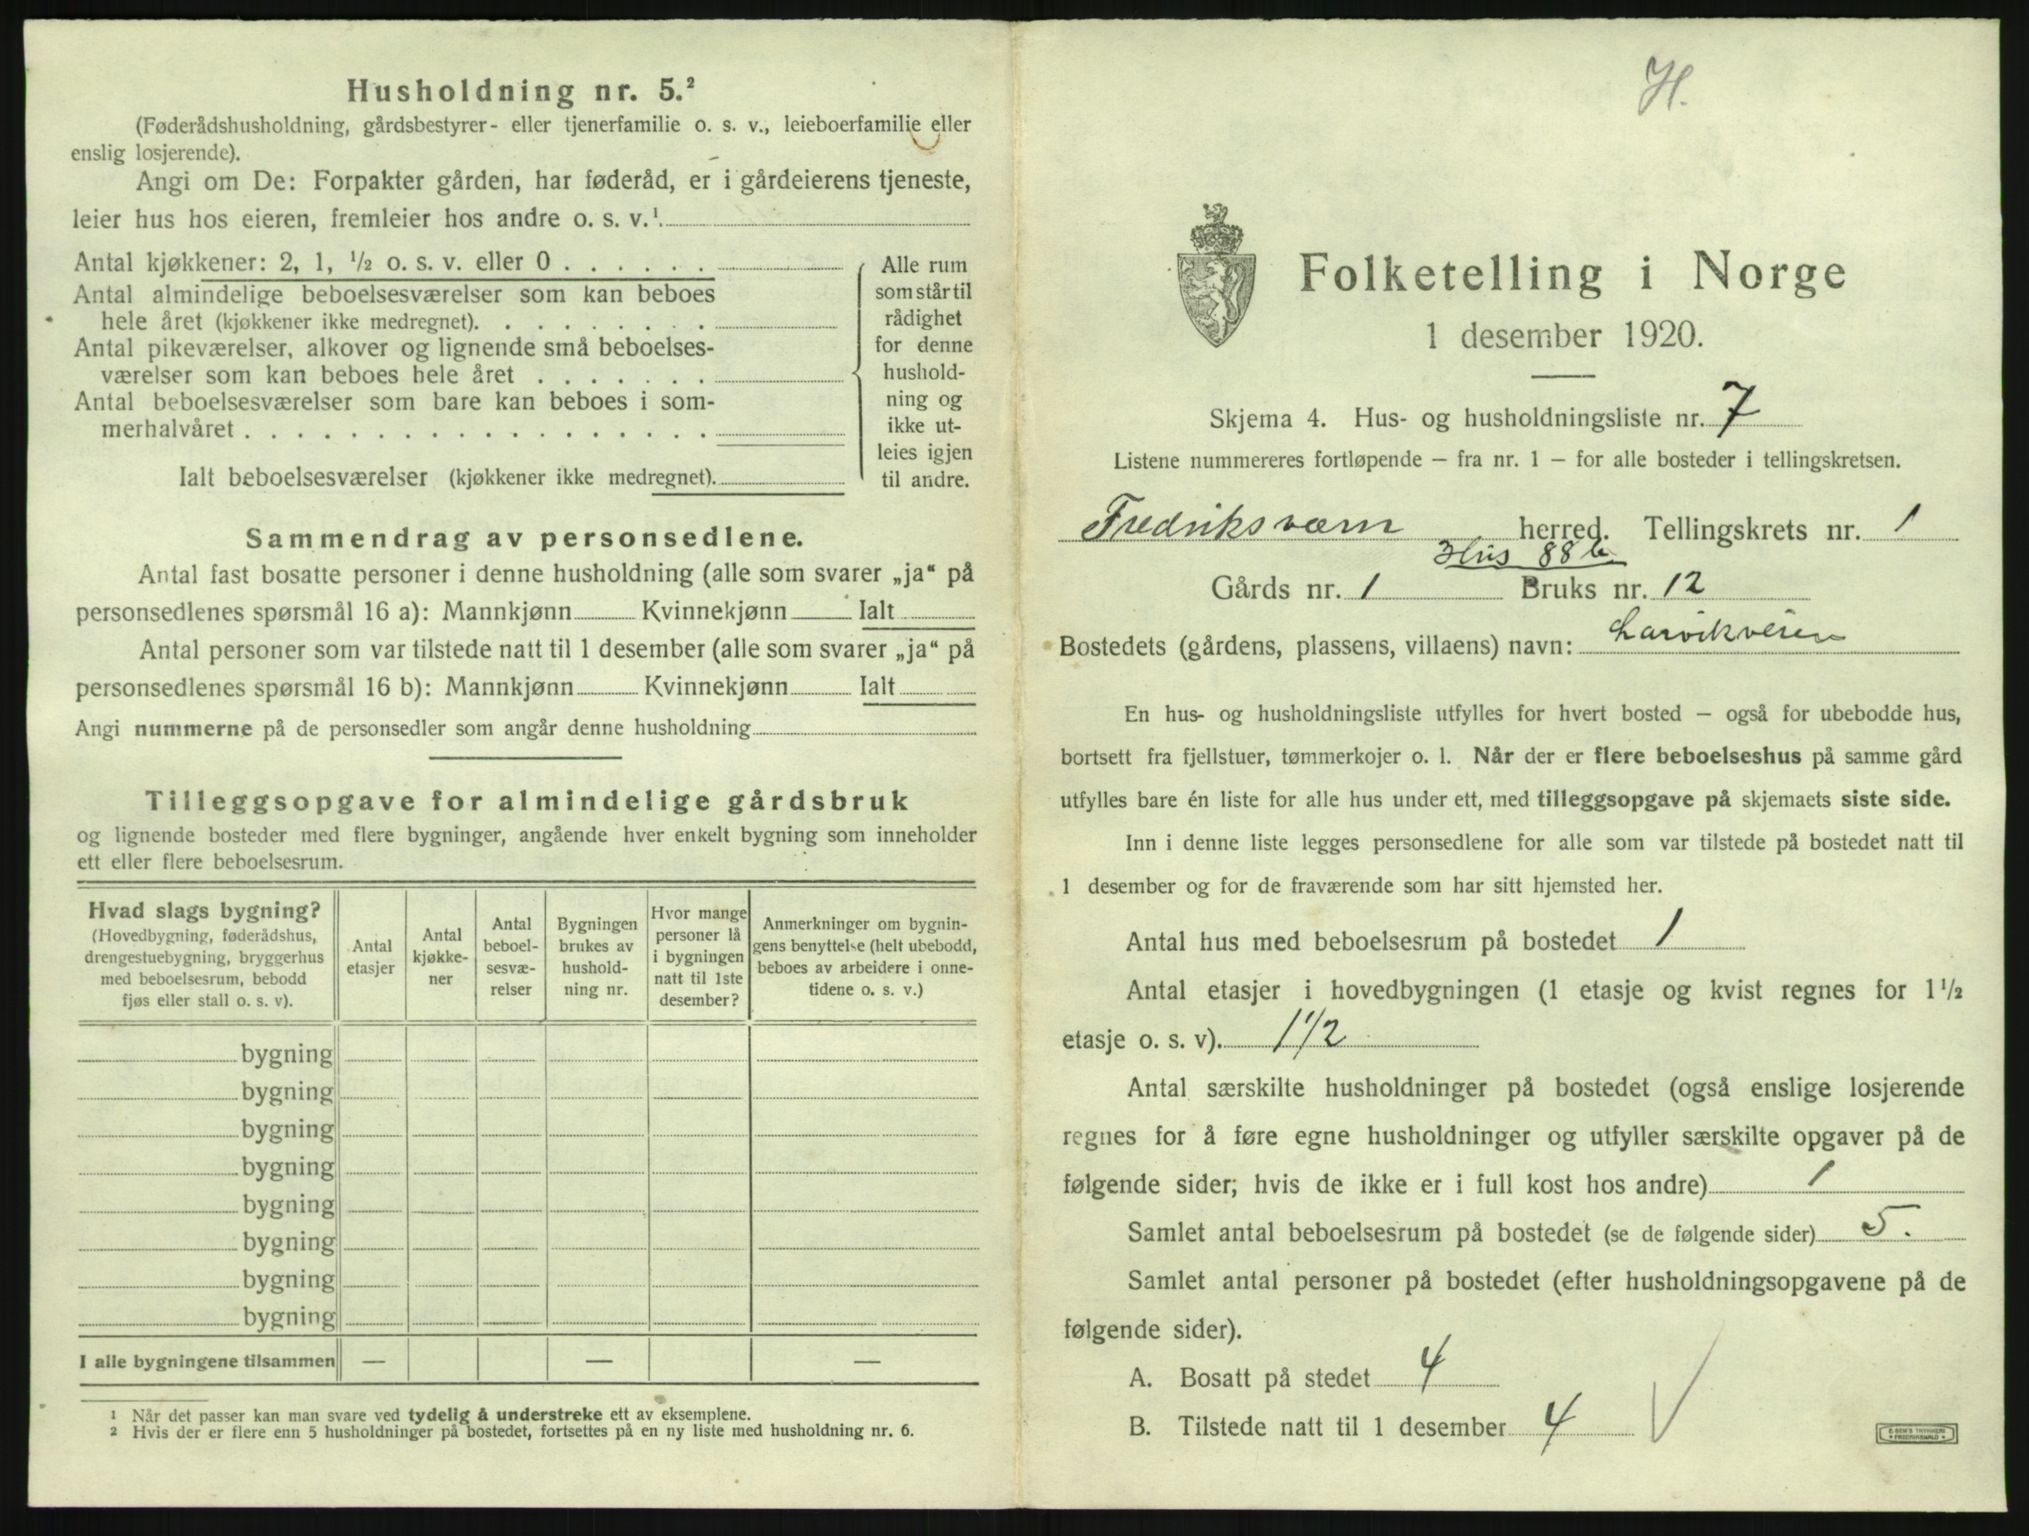 Husholdning nr. 5.²
(Føderådshusholdning, gårdsbestyrer- eller tjenerfamilie o. s. v., leieboerfamilie eller
enslig losjerende).
Angi om De: Forpakter gården, har føderåd, er i gårdeierens tjeneste,
leier hus hos eieren, fremleier hos andre o. s. v.¹.
Antal kjøkkener: 2, 1, ½ o. s. v. eller 0 . . . . . .
Antal almindelige beboelsesværelser som kan beboes
hele året (kjøkkener ikke medregnet). . . . . . . . .
Antal pikeværelser, alkover og lignende små beboelses-
værelser som kan beboes hele året . . . . . . .
Antal beboelsesværelser som bare kan beboes i som-
merhalvåret . . . . . . . . . . . . . . . . . .
Ialt beboelsesværelser (kjøkkener ikke medregnet).
Alle rum
som står til
rådighet
for denne
hushold-
ning og
ikke ut-
leies igjen
til andre.
Sammendrag av personsedlene.
Antal fast bosatte personer i denne husholdning (alle som svarer „ja“ på
personsedlenes spørsmål 16 a): Mannkjønn Kvinnekjønn Ialt
Antal personer som var tilstede natt til 1 desember (alle som svarer „ja“ på
personsedlenes spørsmål 16 b): Mannkjønn Kvinnekjønn Ialt
Angi nummerne på de personsedler som angår denne husholdning
Tilleggsopgave for almindelige gårdsbruk
og lignende bosteder med flere bygninger, angående hver enkelt bygning som inneholder
ett eller flere beboelsesrum.
Hvad slags bygning?
(Hovedbygning, føderådshus,
drengestuebygning, bryggerhus
med beboelsesrum, bebodd
fjøs eller stall o. s. v).
Antal
etasjer
Antal
kjøkke-
ner
Antal
beboel-
sesvæ-
relser
Bygningen
brukes av
hushold-
ning nr.
Hvor mange
personer lå
i bygningen
natt til 1ste
desember?
Anmerkninger om bygnin-
gens benyttelse (helt ubebodd,
beboes av arbeidere i onne-
tidene o. s. v.)
bygning
bygning
bygning
bygning
bygning
bygning
bygning
bygning
I alle bygningene tilsammen — — —
¹ Når det passer kan man svare ved tydelig å understreke ett av eksemplene.
² Hvis der er flere enn 5 husholdninger på bostedet, fortsettes på en ny liste med husholdning nr. 6.
H.
Folketelling i Norge
1 desember 1920.
Skjema 4. Hus- og husholdningsliste nr. 7
Listene nummereres fortløpende — fra nr. 1 — for alle bosteder i tellingskretsen.
Fredriksværn herred. Tellingskrets nr. 1
Hus 88 b
Gårds nr. 1 Bruks nr. 12
Bostedets (gårdens, plassens, villaens) navn: Larvikveien
En hus- og husholdningsliste utfylles for hvert bosted — også for ubebodde hus,
bortsett fra fjellstuer, tømmerkojer o. l. Når der er flere beboelseshus på samme gård
utfylles bare én liste for alle hus under ett, med tilleggsopgave på skjemaets siste side.
Inn i denne liste legges personsedlene for alle som var tilstede på bostedet natt til
1 desember og for de fraværende som har sitt hjemsted her.
Antal hus med beboelsesrum på bostedet 1
Antal etasjer i hovedbygningen (1 etasje og kvist regnes for 1½
etasje o. s. v). 1½
Antal særskilte husholdninger på bostedet (også enslige losjerende
regnes for å føre egne husholdninger og utfyller særskilte opgaver på de
følgende sider; hvis de ikke er i full kost hos andre) 1
Samlet antal beboelsesrum på bostedet (se de følgende sider) 5.
Samlet antal personer på bostedet (efter husholdningsopgavene på de
følgende sider).
A. Bosatt på stedet 4
B. Tilstede natt til 1 desember 4